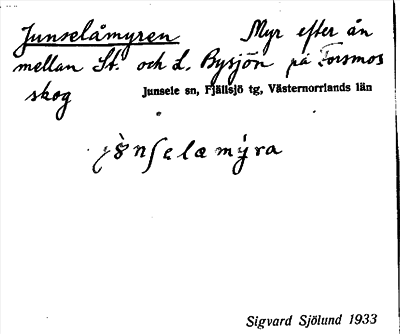 Junselåmyren Myr efter ån
mellan St. och L. Bysjön på Forsmos
skog Junsele sn, Fjällsjö tg, Västernorrlands län
Sigvard Sjölund 1933